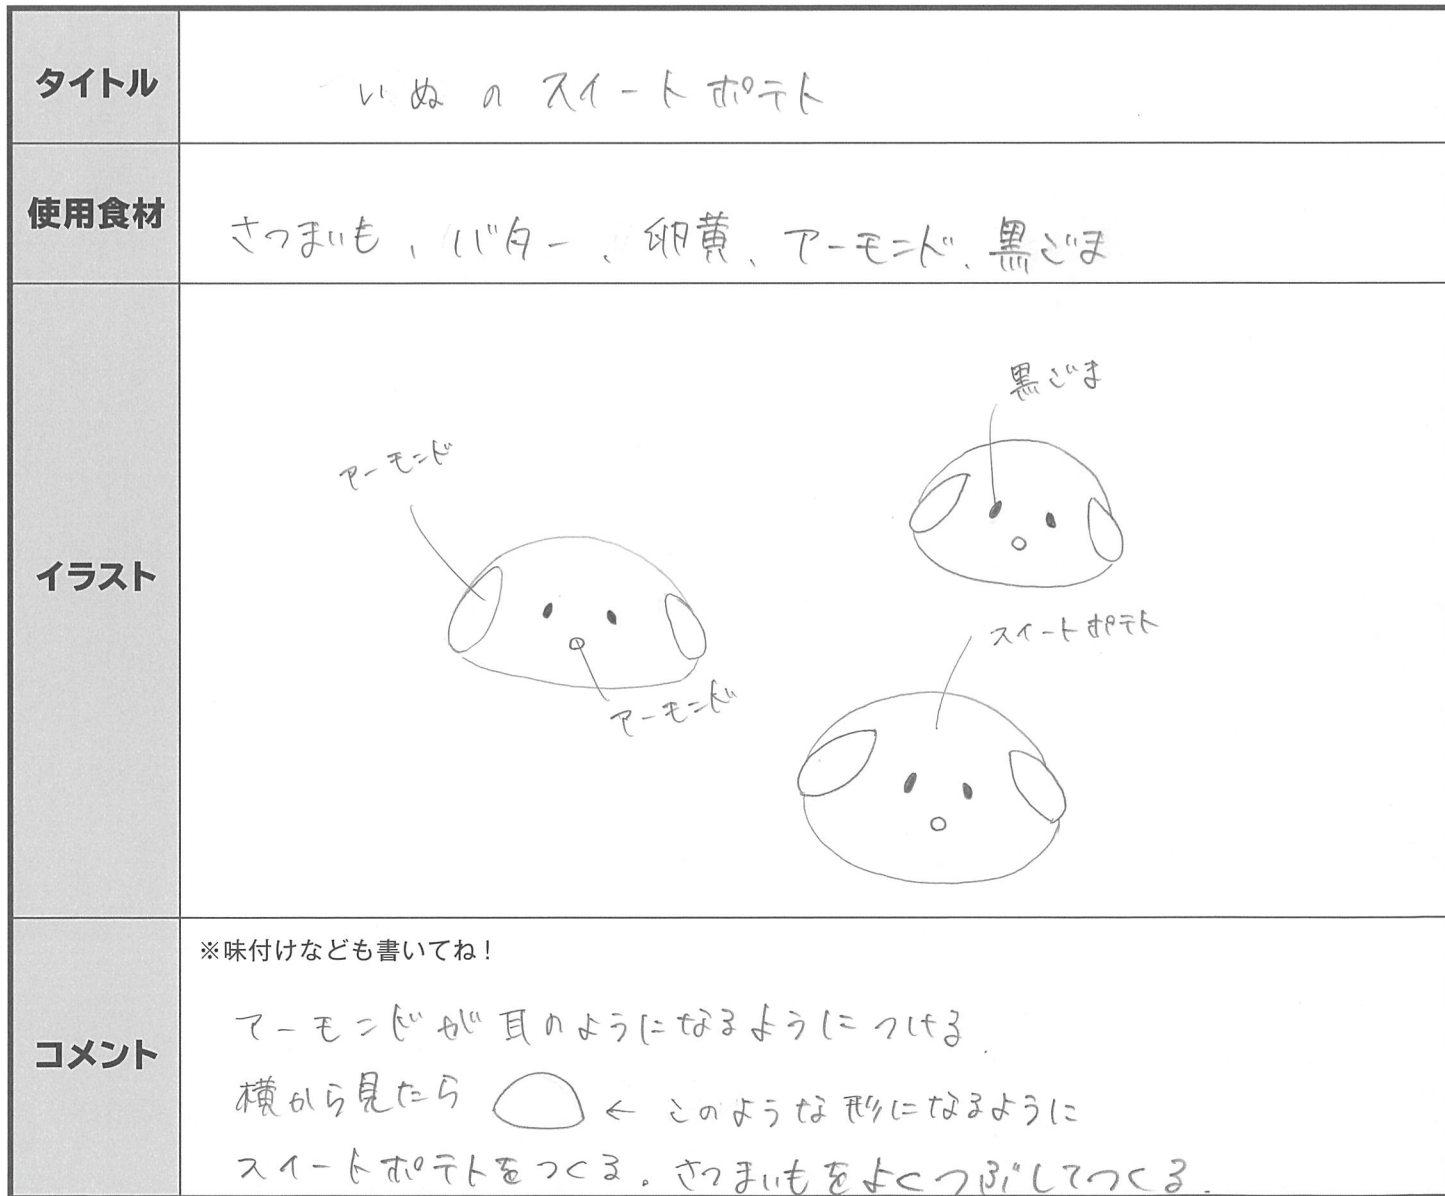 タイトル
いぬのスイートポテト
使用食材
さつまいも、バター、卵黄、アーモンド、黒ごま
イラスト
黒ごま
アーモンド
スイートポテト
アーモンド
コメント
※味付けなども書いてね！
アーモンドが耳のようになるようにつける。
横から見たら ← このような形になるように
スイートポテトをつくる。さつまいもをよくつぶしてつくる。